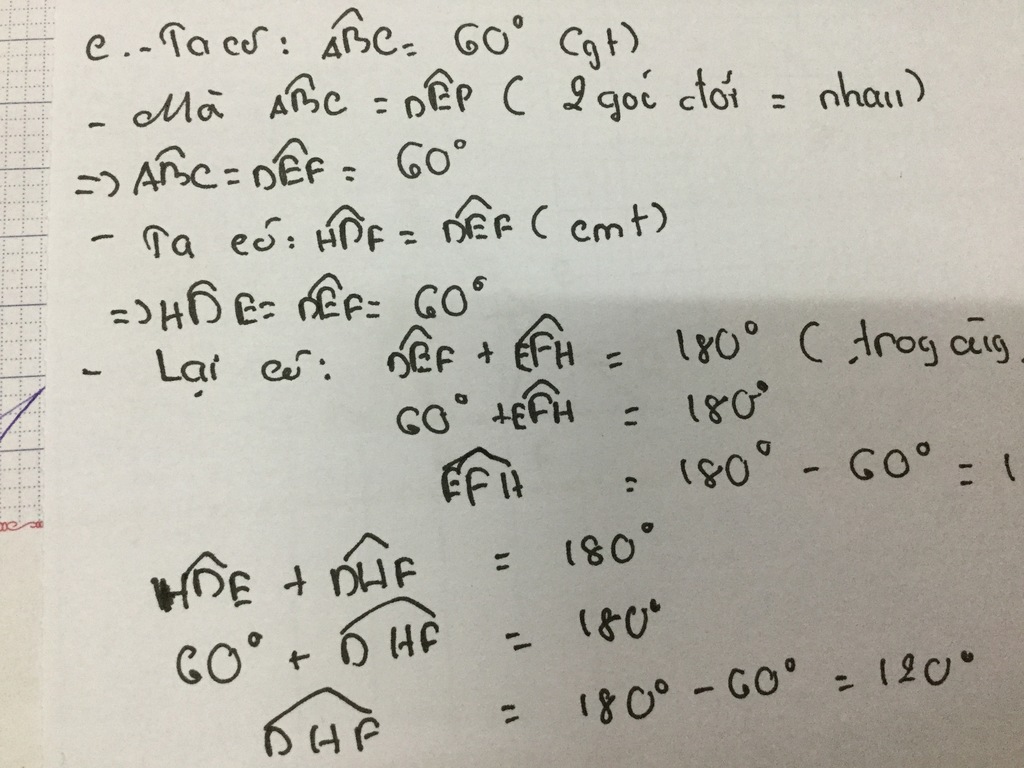 c.- Ta có: ABC = 60° (gt)
- Mà ABC = DEP ( 2 góc đối = nhau)
=> ABC = DEF = 60°
- Ta có: HDF = DEF ( cmt)
=> HDE = DEF = 60°
- Lại có: DEF + EFH = 180° ( trog
60° + EFH = 180°
EFH = 180° - 60° = 1
HDE + DHF = 180°
60° + DHF = 180°
DHF = 180° - 60° = 120°